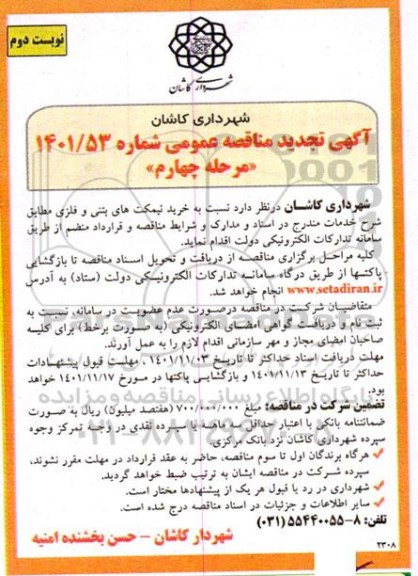 نوبست دوم
شهرداری کاشان
شهرداری کاشان
آگهی تجدید مناقصه عمومی شماره ۱۴۰۱/۵۳
«مرحله چهارم»
شهرداری کاشان درنظر دارد نسبت به خرید نیمکت های بتنی و فلزی مطابق
شرح خدمات مندرج در اسناد و مدارک و شرایط مناقصه و قرارداد منضم از طریق
سامانه تدارکات الکترونیکی دولت اقدام نماید.
کلیه مراحل برگزاری مناقصه از دریافت و تحویل اسناد مناقصه تا بازگشایی
پاکتها از طریق درگاه سامانه تدارکات الکترونیکی دولت (ستاد) به آدرس
www.setadiran.ir انجام خواهد شد.
متقاضیان شرکت در مناقصه درصورت عدم عضویت در سامانه، نسبت به
ثبت نام و دریافت گواهی امضای الکترونیکی (به صورت برخط) برای کلیه
صاحبان امضای مجاز و مهر سازمانی اقدام لازم را به عمل آورند.
مهلت دریافت اسناد حداکثر تا تاریخ ۱۴۰۱/۱۱/۰۳ ، مهلت قبول پیشنهادات
حداکثر تا تاریخ ۱۴۰۱/۱۱/۱۳ و بازگشایی پاکتها در مورخ ۱۴۰۱/۱۱/۱۷ خواهد
بود.
تضمین شرکت در مناقصه: مبلغ ۷۰۰/۰۰۰/۰۰۰ (هفتصد میلیون) ریال به صورت
ضمانتنامه بانکی با اعتبار حداقل ماهه یا سپرده نقدی در وجه تمرکز وجوه
سپرده شهرداری کاشان نزد بانک مرکزی.
هرگاه برندگان اول تا سوم مناقصه، حاضر به عقد قرارداد در مهلت مقرر نشوند،
سپرده شرکت در مناقصه ایشان به ترتیب ضبط خواهد گردید.
شهرداری در رد یا قبول هر یک از پیشنهادها مختار است.
سایر اطلاعات و جزئیات در اسناد مناقصه درج شده است.
تلفن: ۸-۵۵۴۴۰۰۵۵ (۰۳۱)
شهردار کاشان – حسن بخشنده امنیه
۲۳۰۸
پایگاه اطلاع رسانی مناقصه و مزایده